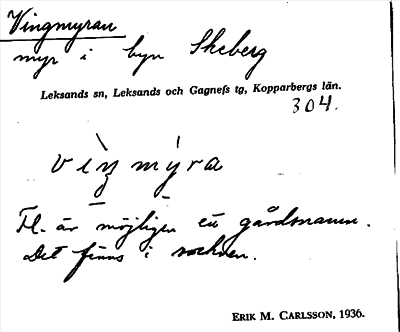 Vingmyran
myr i byn Skeberg
Leksands sn, Leksands och Gagnefs tg, Kopparbergs län.
304.
vìŋmýra
Fl. är möjligen ett gårdsnamn.
Det finns i socknen.
ERIK M. CARLSSON, 1936.